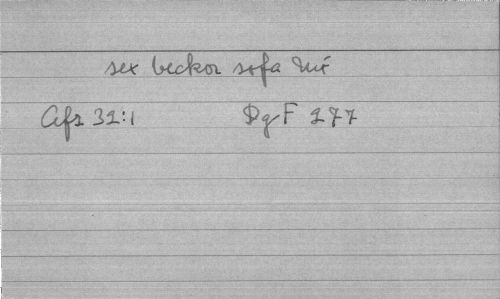 sex beckor sofa
Afs 32:1 DgF 277